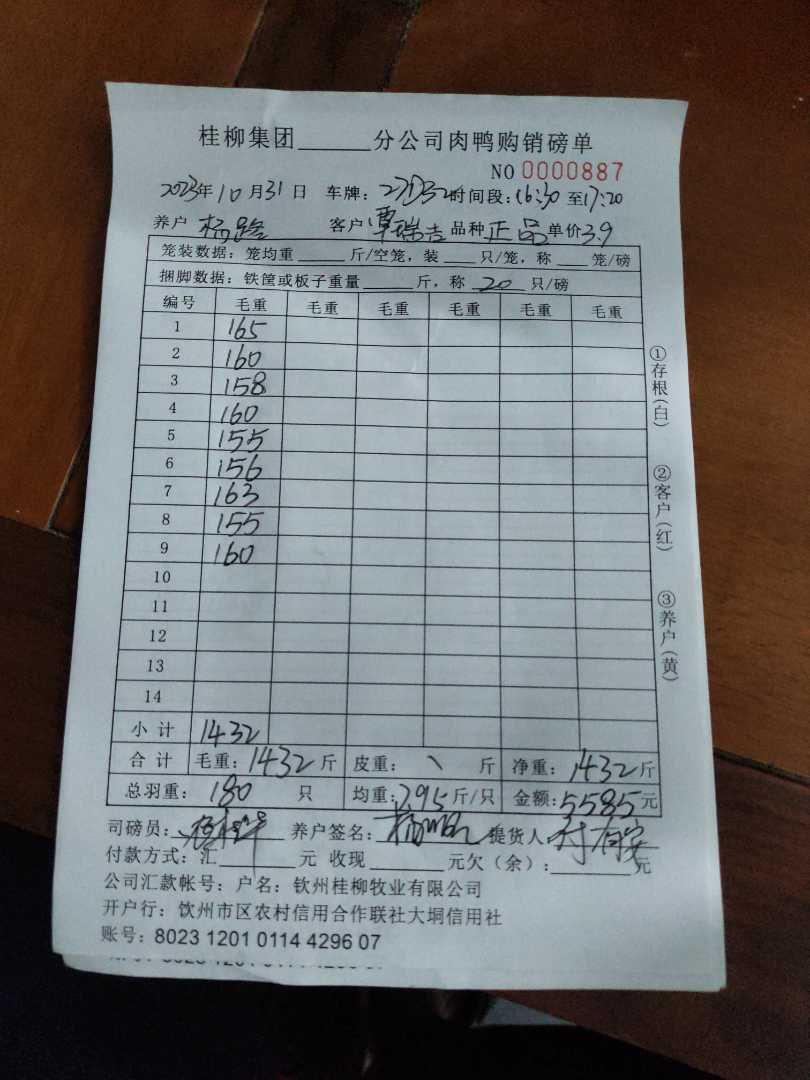 桂柳集团______分公司肉鸭购销磅单
NO 0000887
2023年10月31日 车牌: 时间段:16:30至17:20
养户 杨 客户 覃瑞吉 品种 正品 单价3.9
笼装数据: 笼均重______斤/空笼,装____只/笼,称____笼/磅
捆脚数据: 铁筐或板子重量______斤,称 20 只/磅
编号 毛重 毛重 毛重 毛重 毛重 毛重
1 165
2 160
3 158
4 160
5 155
6 156
7 163
8 155
9 160
10
11
12
13
14
小计 1432
合计 毛重:1432斤 皮重: \ 斤 净重:1432斤
总羽重: 180 只 均重:7.95斤/只 金额:5585元
司磅员: 养户签名: 提货人:
付款方式:汇______元 收现______元欠(余):______元
公司汇款帐号: 户名: 钦州桂柳牧业有限公司
开户行: 钦州市区农村信用合作联社大垌信用社
账号: 8023 1201 0114 4296 07
①存根(白)
②客户(红)
③养户(黄)